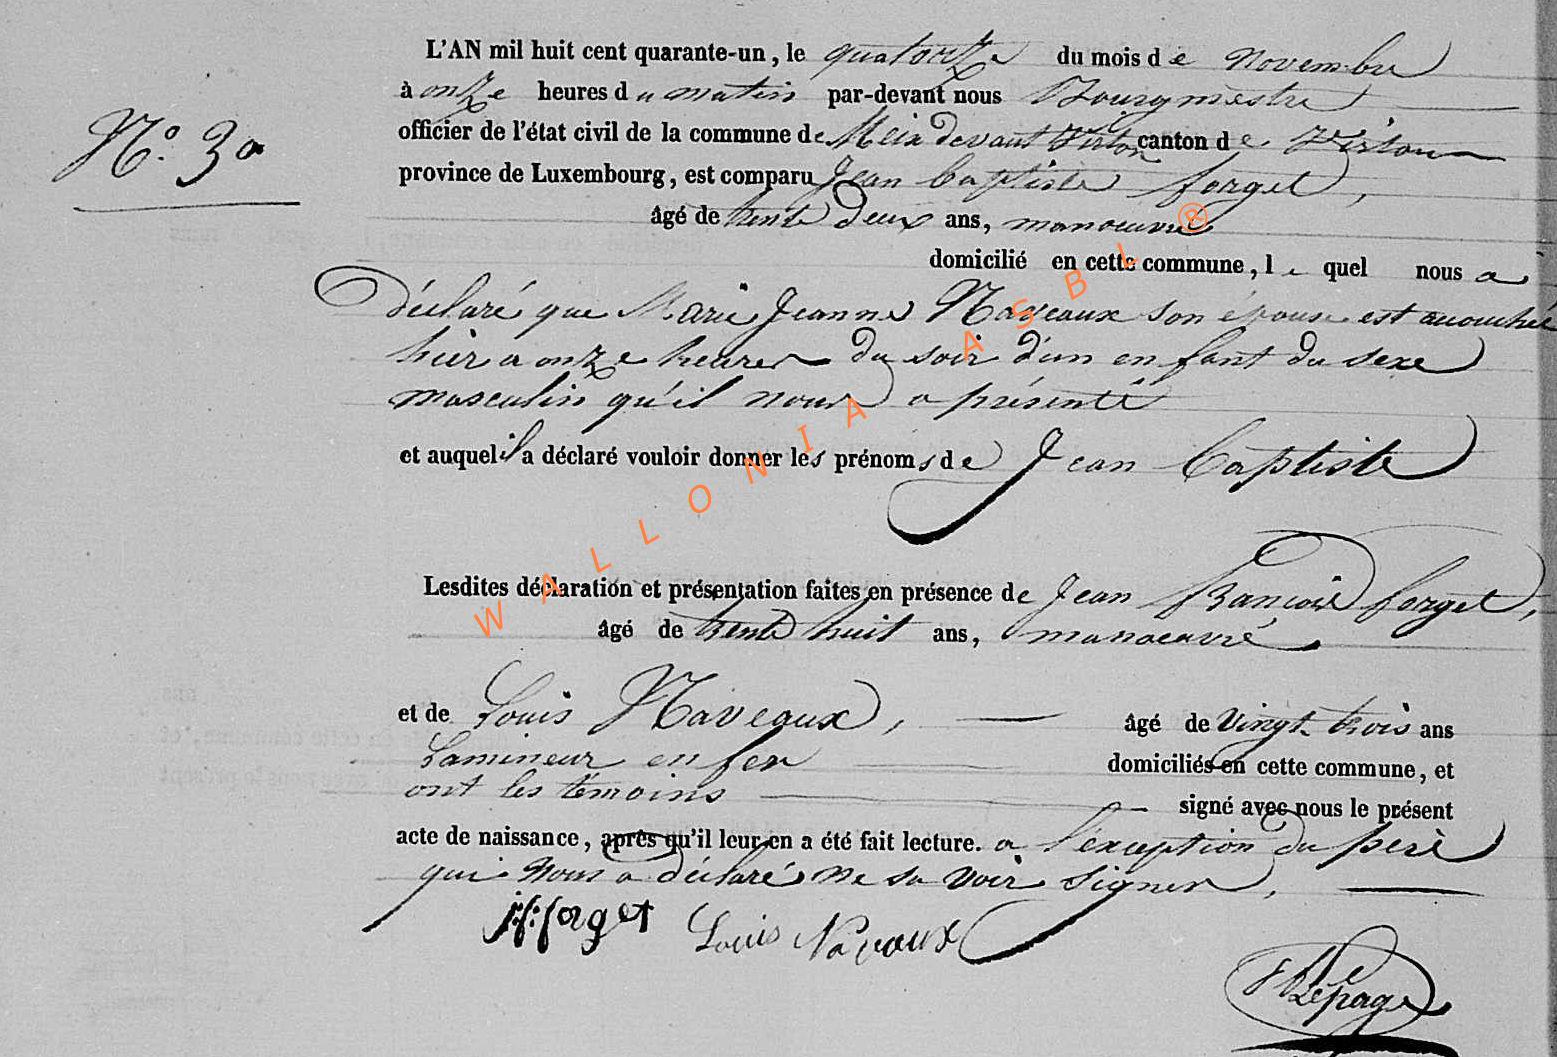 L'AN mil huit cent quarante-un, le quatorze du mois de novembre
à onze heures du matin par-devant nous Bourgmestre
officier de l'état civil de la commune de Meix devant Virton canton de Virton
N.° 30
province de Luxembourg, est comparu Jean baptiste forget,
âgé de trente deux ans, manoeuvre
domicilié en cette commune, lequel nous a
déclaré que Marie Jeanne Naveaux son épouse est accouchée
hier a onze heures du soir d'un enfant du sexe
masculin qu'il nous a présenté
et auquel il a déclaré vouloir donner les prénoms de Jean Baptiste
Lesdites déclaration et présentation faites en présence de Jean francois forget,
âgé de trente huit ans, manoeuvré
et de Louis Naveaux, âgé de vingt trois ans
Lamineur en fer domiciliés en cette commune, et
ont les témoins signé avec nous le présent
acte de naissance, après qu'il leur en a été fait lecture. a l'exception du pere
qui nous a déclaré ne savoir signer,
J.f. forget Louis Navaux
Lepage
WALLONIA ASBL ®